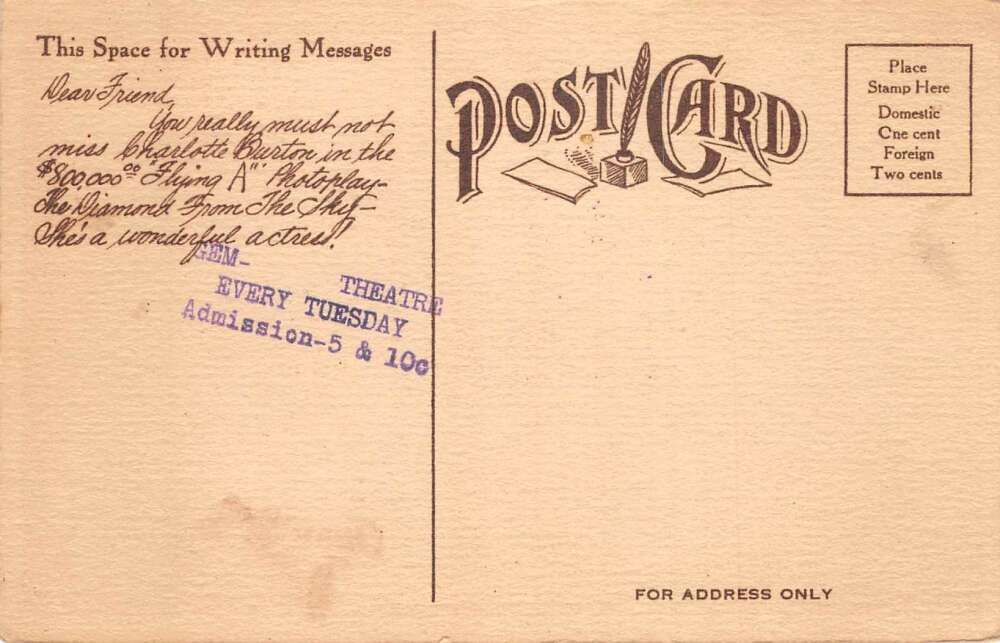 This Space for Writing Messages
Dear Friend,
You really must not
miss Charlotte Burton in the
$800,000.00 "Flying A" Photoplay-
The Diamond From The Sky-
She's a wonderful actress!
GEM-
THEATRE
EVERY TUESDAY
Admission-5 & 10c
POST CARD
Place
Stamp Here
Domestic
One cent
Foreign
Two cents
FOR ADDRESS ONLY